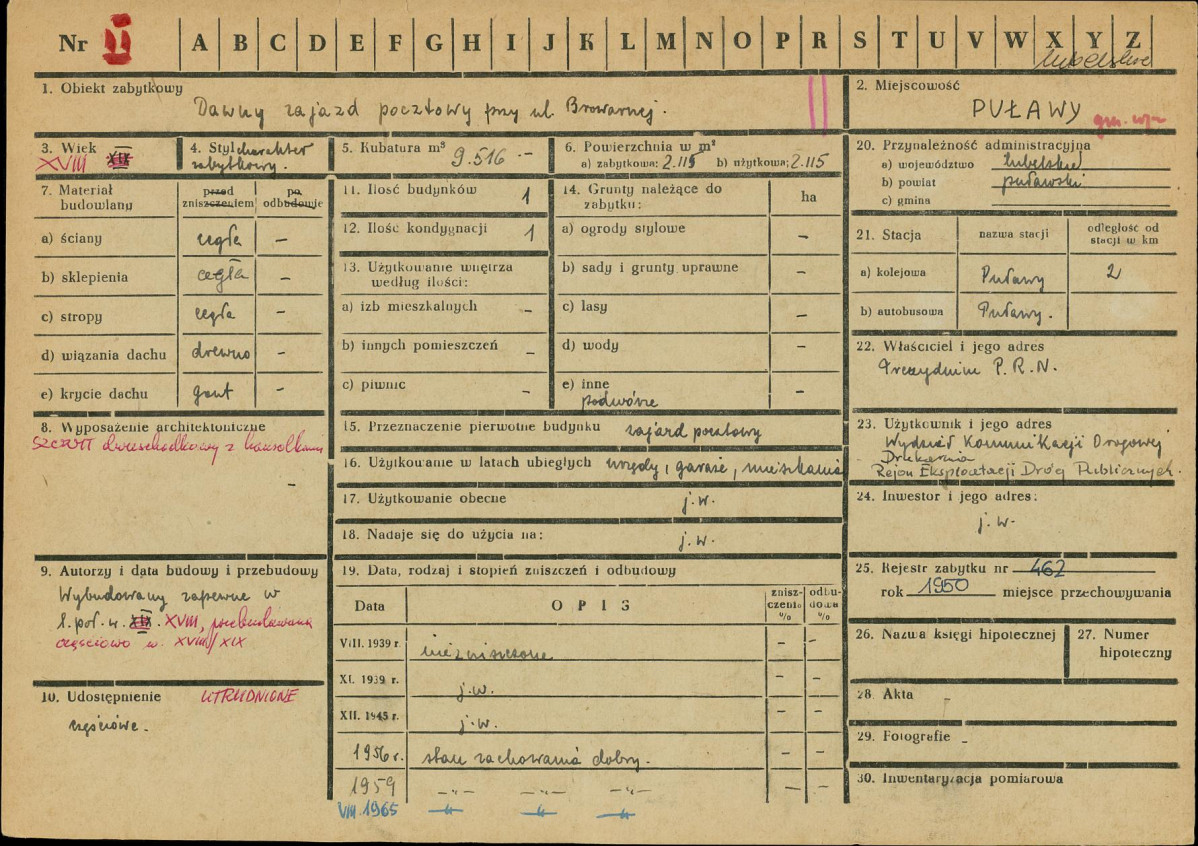 Nr II A B C D E F G H I J K L M N O P R S T U V W X Y Z
lubelskie
1. Obiekt zabytkowy
Dawny zajazd pocztowy przy ul. Browarnej.
2. Miejscowość
PUŁAWY
3. Wiek
XVIII XIX
4. Styl charakter
zabytkowy.
5. Kubatura m³ 9.516 -
6. Powierzchnia w m²
a) zabytkowa: 2.115 b) użytkowa: 2.115
20. Przynależność administracyjna
a) województwo lubelskie
b) powiat puławski
c) gmina
7. Materiał budowlany
przed zniszczeniem
po odbudowie
a) ściany cegła -
b) sklepienia cegła -
c) stropy cegła -
d) wiązania dachu drewno -
e) krycie dachu gont -
11. Ilość budynków 1
12. Ilość kondygnacji 1
13. Użytkowanie wnętrza
według ilości:
a) izb mieszkalnych -
b) innych pomieszczeń -
c) piwnic -
14. Grunty należące do
zabytku: ha
a) ogrody stylowe -
b) sady i grunty uprawne -
c) lasy -
d) wody -
e) inne
podwórze -
21. Stacja nazwa stacji odległość od
stacji w km
a) kolejowa Puławy 2
b) autobusowa Puławy.
22. Właściciel i jego adres
Prezydium P.R.N.
8. Wyposażenie architektoniczne
szczyt dwuspadkowy z
-
15. Przeznaczenie pierwotne budynku zajazd pocztowy
16. Użytkowanie w latach ubiegłych urzędy, garaże, mieszkania
17. Użytkowanie obecne j.w.
18. Nadaje się do użycia na: j.w.
23. Użytkownik i jego adres
Wydział Komunikacji Drogowej
Drukarnia
Rejon Eksploatacji Dróg Publicznych.
24. Inwestor i jego adres:
j.w.
9. Autorzy i data budowy i przebudowy
Wybudowany zapewne w
1. poł. w. XIX. XVIII, przebudowana
częściowo w. XVIII/XIX
10. Udostępnienie UTRUDNIONE
częściowe.
19. Data, rodzaj i stopień zniszczeń i odbudowy
Data OPIS znisz-
czenia % odbu-
dowa %
VIII. 1939 r. niezniszczone - -
XI. 1939 r. j.w. - -
XII. 1945 r. j.w. - -
1956 r. stan zachowania dobry. - -
1959 -"- -"- -"- - -
VIII. 1965 -"- -"- -"-
25. Rejestr zabytku nr 462
rok 1950 miejsce przechowywania
26. Nazwa księgi hipotecznej
27. Numer
hipoteczny
28. Akta -
29. Fotografie -
30. Inwentaryzacja pomiarowa